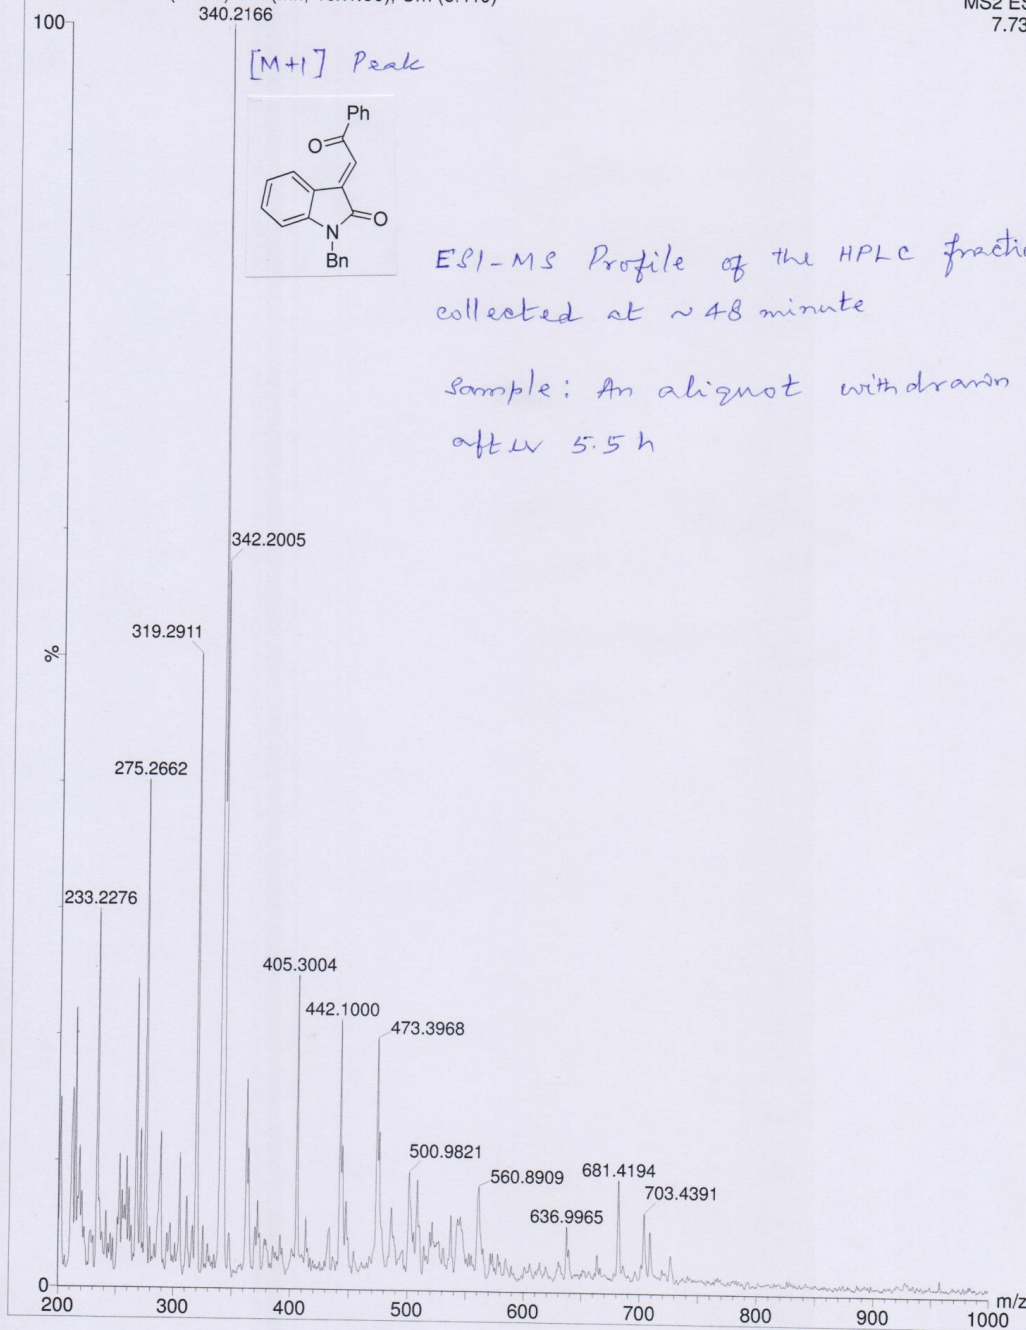 340.2166
MS2 ES
7.73
100
[M+1] Peak
Ph
O
O
N
Bn
ESI-MS Profile of the HPLC fractio
collected at ~ 48 minute
Sample: An aliquot withdrawn
after 5.5 h
342.2005
319.2911
%
275.2662
233.2276
405.3004
442.1000
473.3968
500.9821
560.8909
681.4194
703.4391
636.9965
0
200 300 400 500 600 700 800 900 1000 m/z